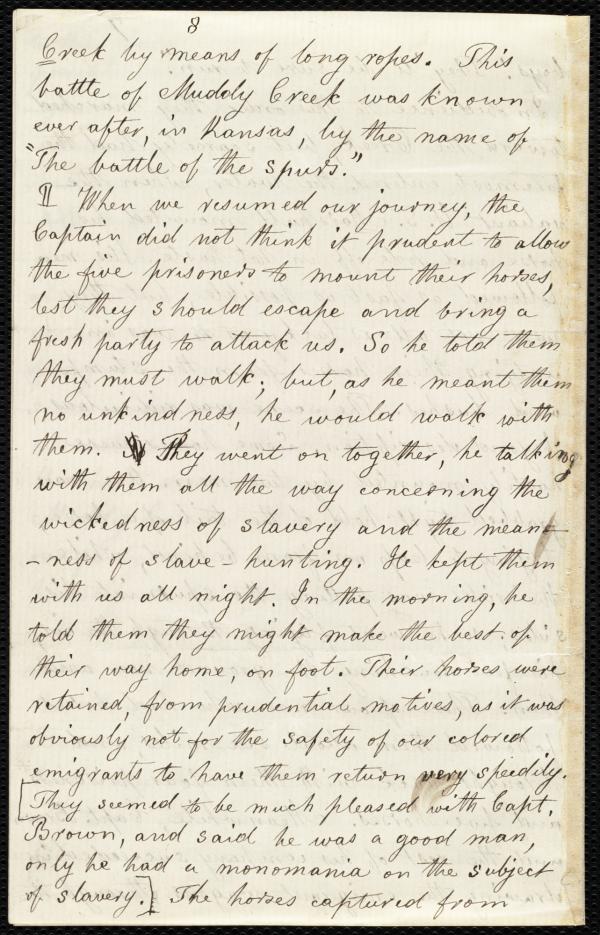 8
Creek by means of long ropes. This
battle of Muddy Creek was known
ever after, in Kansas, by the name of
"The battle of the spurs."
¶ When we resumed our journey, the
Captain did not think it prudent to allow
the five prisoners to mount their horses,
lest they should escape and bring a
fresh party to attack us. So he told them
they must walk; but, as he meant them
no unkindness, he would walk with
them. They went on together, he talking
with them all the way concerning the
wickedness of slavery and the mean-
-ness of slave-hunting. He kept them
with us all night. In the morning, he
told them they might make the best of
their way home, on foot. Their horses were
retained, from prudential motives, as it was
obviously not for the safety of our colored
emigrants to have them return very speedily.
[They seemed to be much pleased with Capt.
Brown, and said he was a good man,
only he had a monomania on the subject
of slavery.] The horses captured from